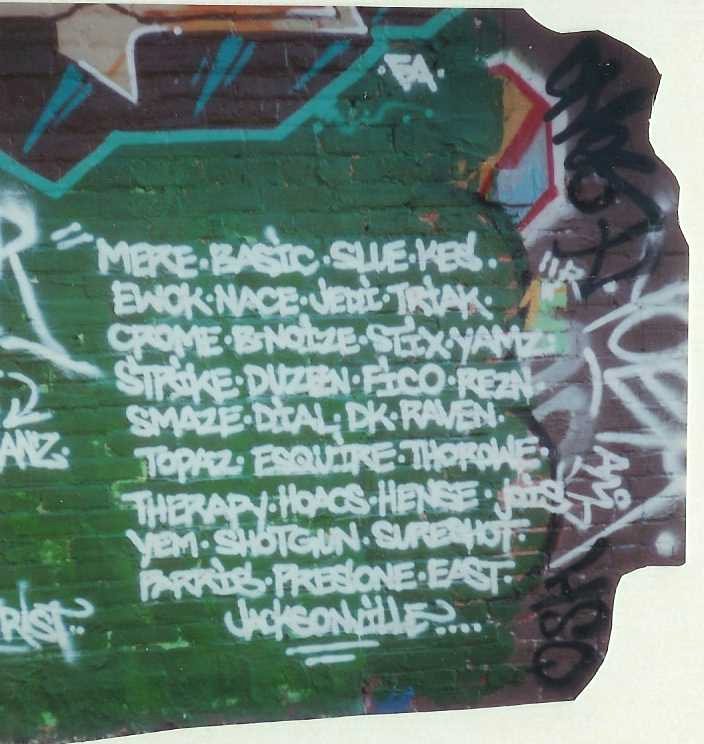 ·EA·
"MERE·BASIC·SLUE·KES·
EWOK·NACE·JEDI·TRIAK·
CROME·B-NOIZE·STIX·YAMZ·
STRIKE·DUZEN·FICO·REZN·
SMAZE·DIAL·DK·RAVEN·
TOPAZ·ESQUIRE·THOROWE·
THERAPY·HOACS·HENSE·
YEM·SHOTGUN·SURESHOT·
PARRIS·PRESIONE·EAST·
JACKSONVILLE....